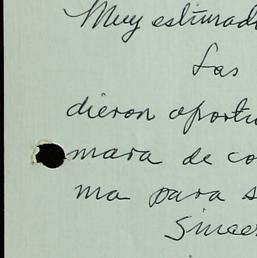 Muy estimad
Las
dieron oportu
mara de co
ma para s
Since